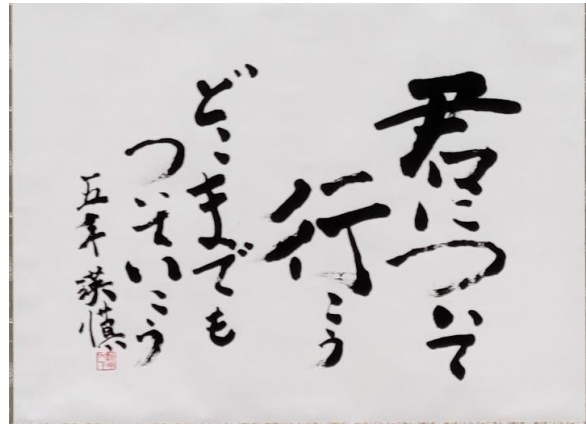 君について
行こう
どこまでも
ついていこう
五年 瑛慎